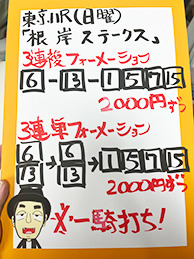 東京11R(日曜)
「根岸ステークス」
3連複フォーメーション
6-13-1 5 7 15
2000円ずつ
3連単フォーメーション
6 13→6 13→1 5 7 15
2000円ずつ
一騎打ち!